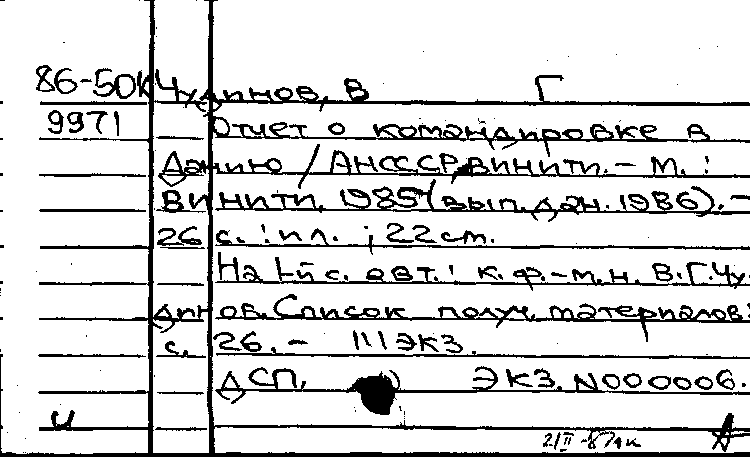 86-50к Чудинов, В Г
9971 Отчет о командировке в
Данию / АНСССР, ВИНИТИ. – М. :
ВИНИТИ, 1985 (вып. дан. 1986). –
26 с. : ил. ; 22 см.
На 1-й с. авт. : к. ф.-м. н. В. Г. Чу
динов. Список получ. материалов:
с. 26. – 111 экз.
ДСП. Экз. N000006.
и